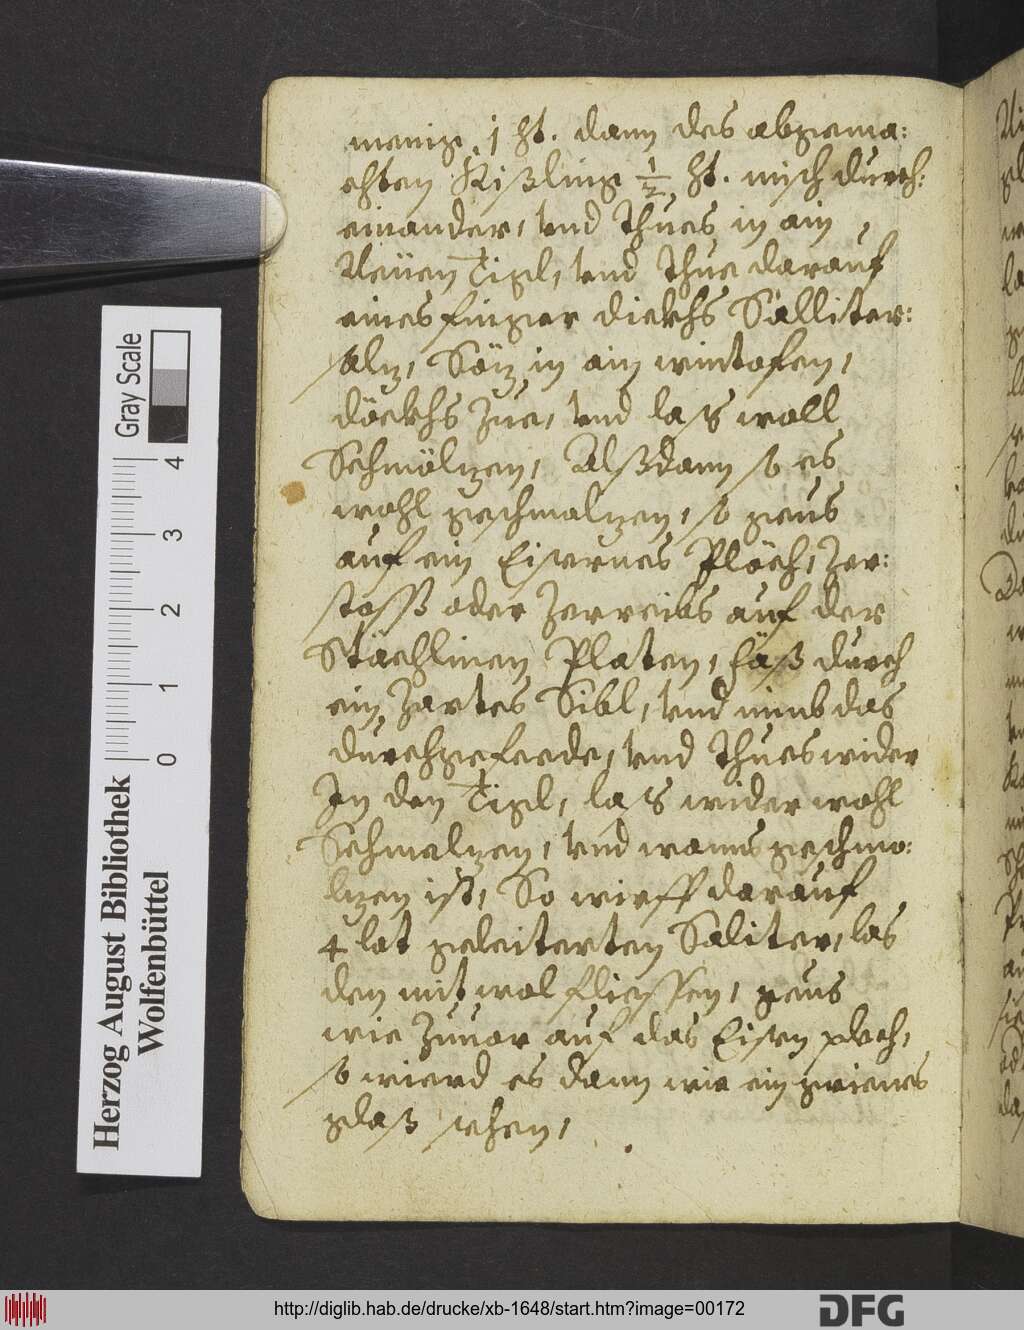 menig, 1 ℔. dann des abgema:
chten Kißling ½ ℔. misch durch:
einander, vnd thues in ain
Neüen Tigl, vnd thue darauf
eines finger dickhs Salliter:
salz, Söz in ain wintofen,
döckhs Zue, vnd laß woll
Schmölzen, Alßdann so es
wohl geschmalzen, so geus
auf ein Eisernes Plöch, Zer:
stoss oder Zerreibs auf der
Stächlinen Platen, fäß durch
ein Zartes Sibl, vnd nimb das
durchgefeede, vnd thues wider
In den Tigl, laß wider wohl
Schmelzen, vnd wanns geschmo:
lzen ist, So wirff darauf
4 lot geleiterten Saliter, las
den mit wol fliessen, geus
wie Zuuor auf das Eisen plech,
so wierd es dann wie ein grienes
glaß sehen,
Gray Scale
0 1 2 3 4
Herzog August Bibliothek
Wolfenbüttel
http://diglib.hab.de/drucke/xb-1648/start.htm?image=00172
DFG